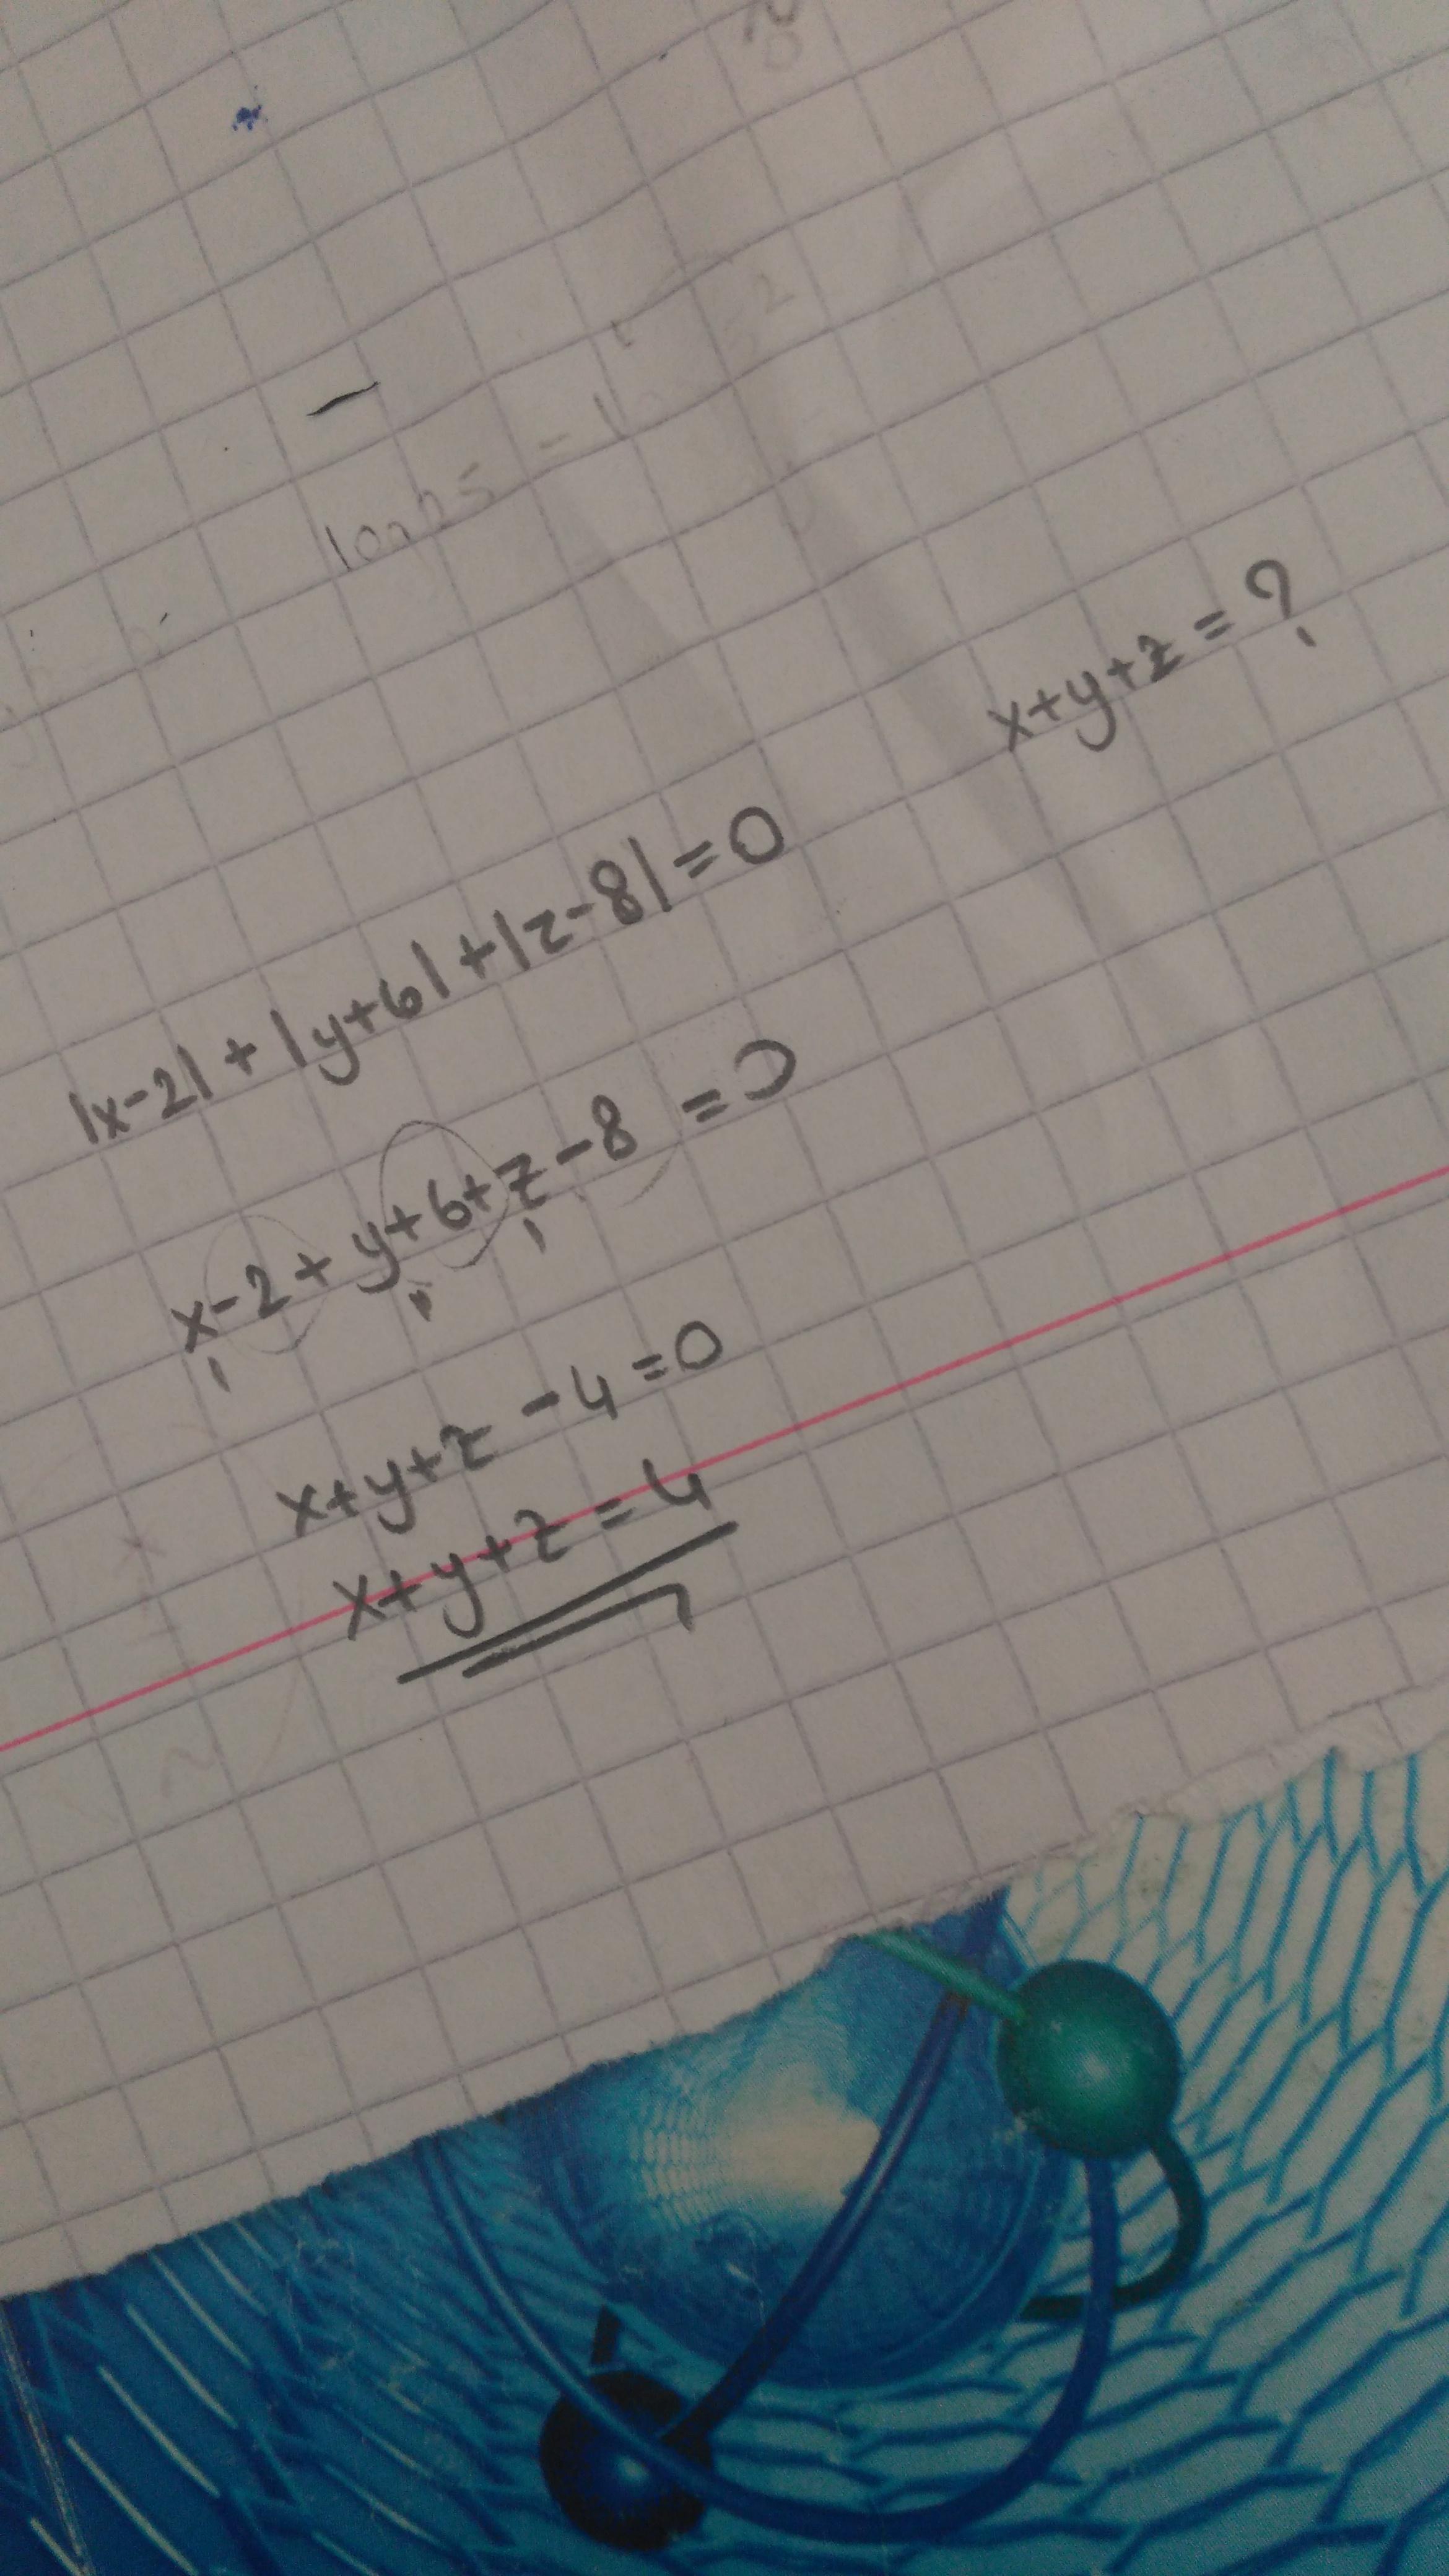 x+y+z=?
|x-2|+|y+6|+|z-8|=0
x-2+y+6+z-8=0
x+y+z-4=0
x+y+z=4